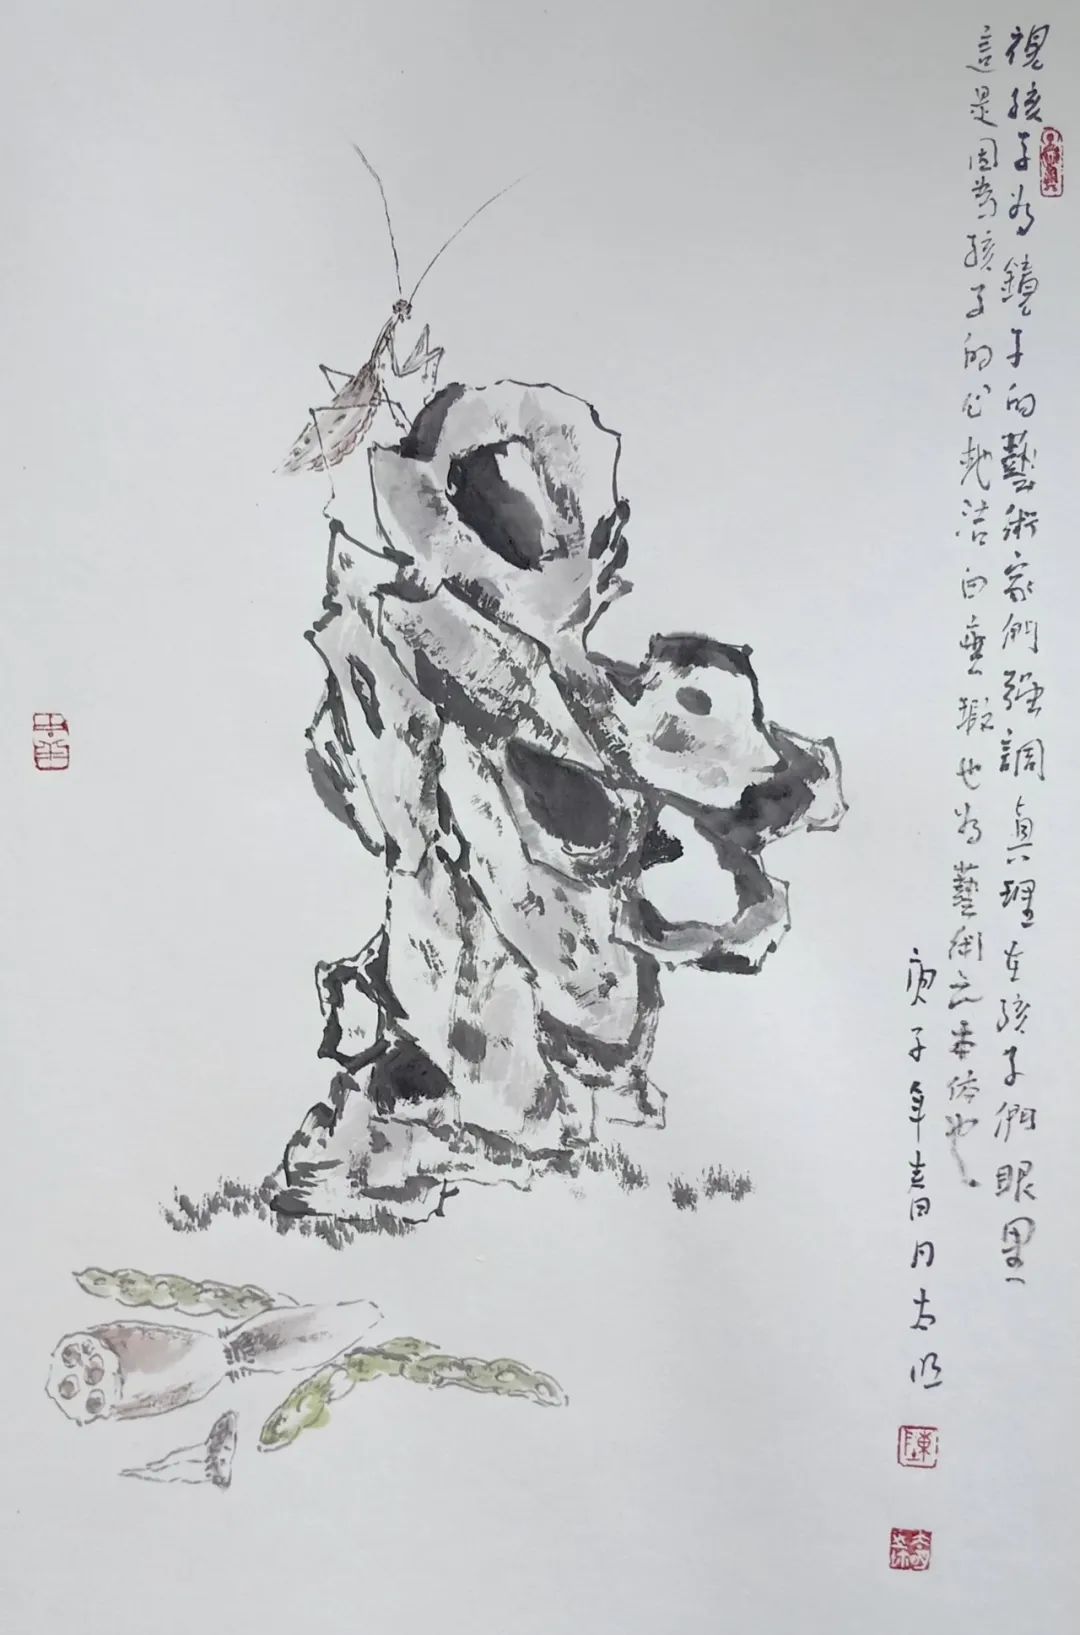 視孩子为鏡子的藝術家們强調真理在孩子們眼里
這是因為孩子的心純洁的無瑕也为藝術之本体也
庚子年春月太明
陳